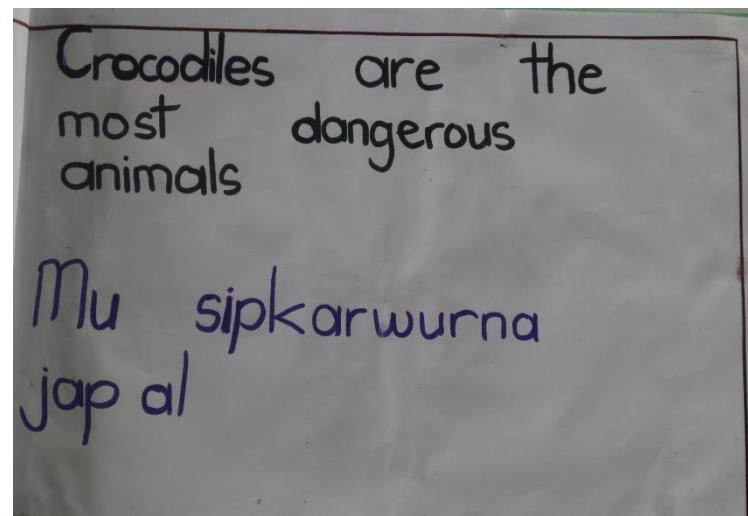 Crocodiles are the
most dangerous
animals
Mu sipkarwurna
jap al